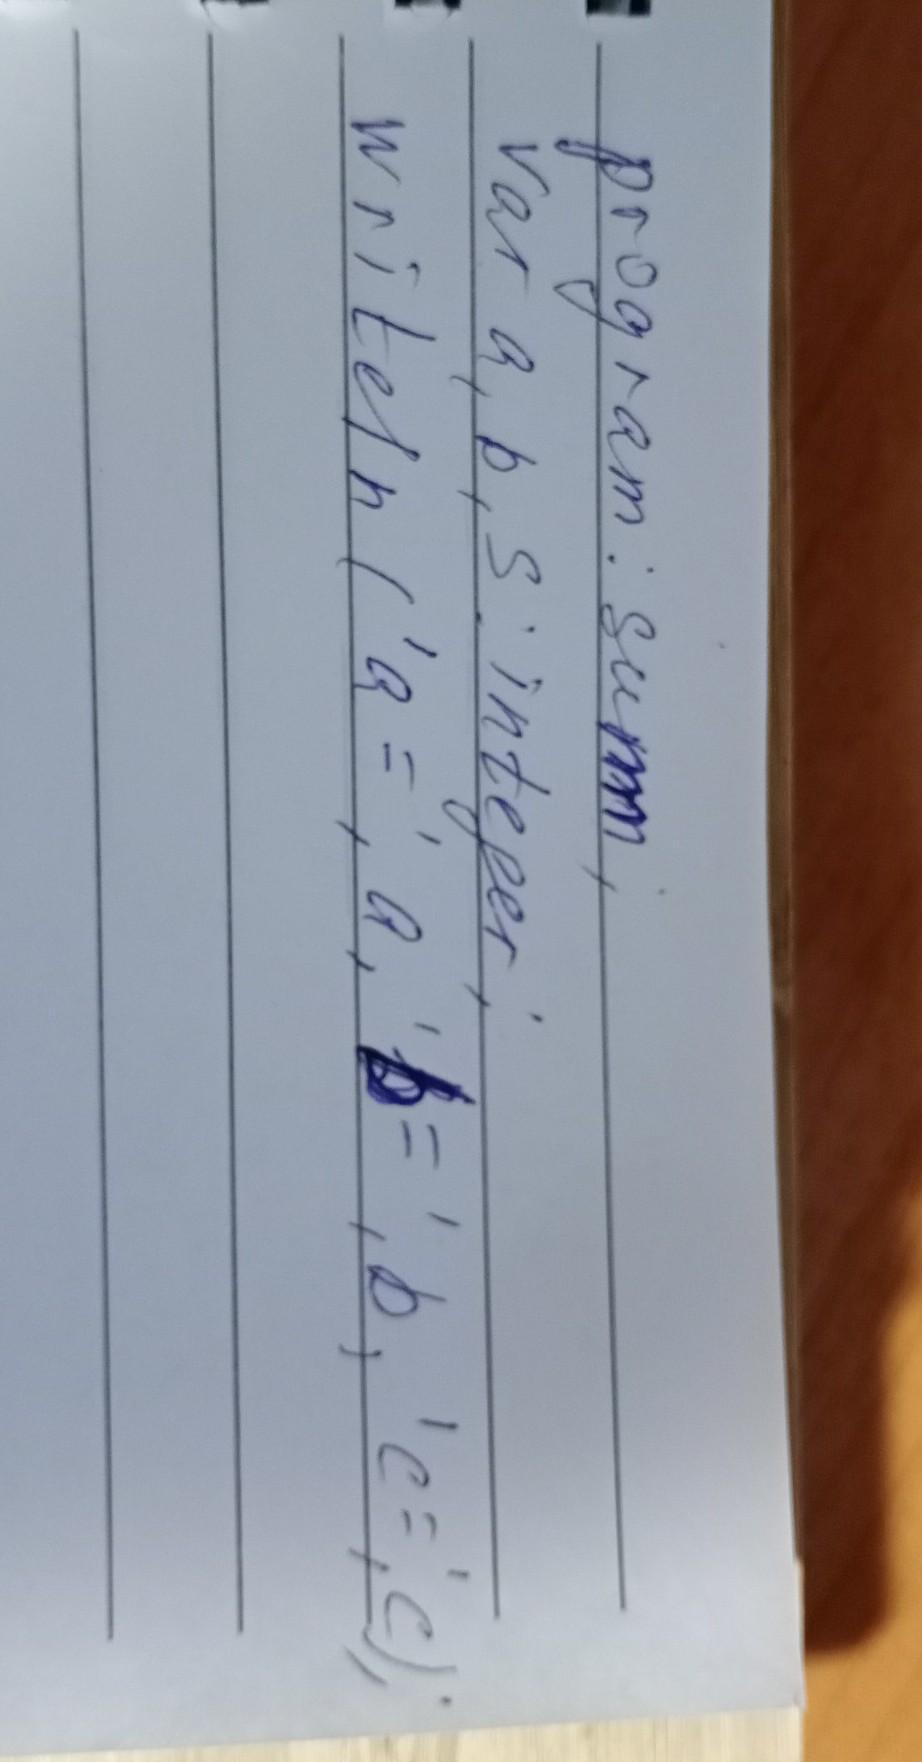 program: summ;
Var a, b, S: integer;
writeln ('a=', a, 'b=', b, 'c=', c);